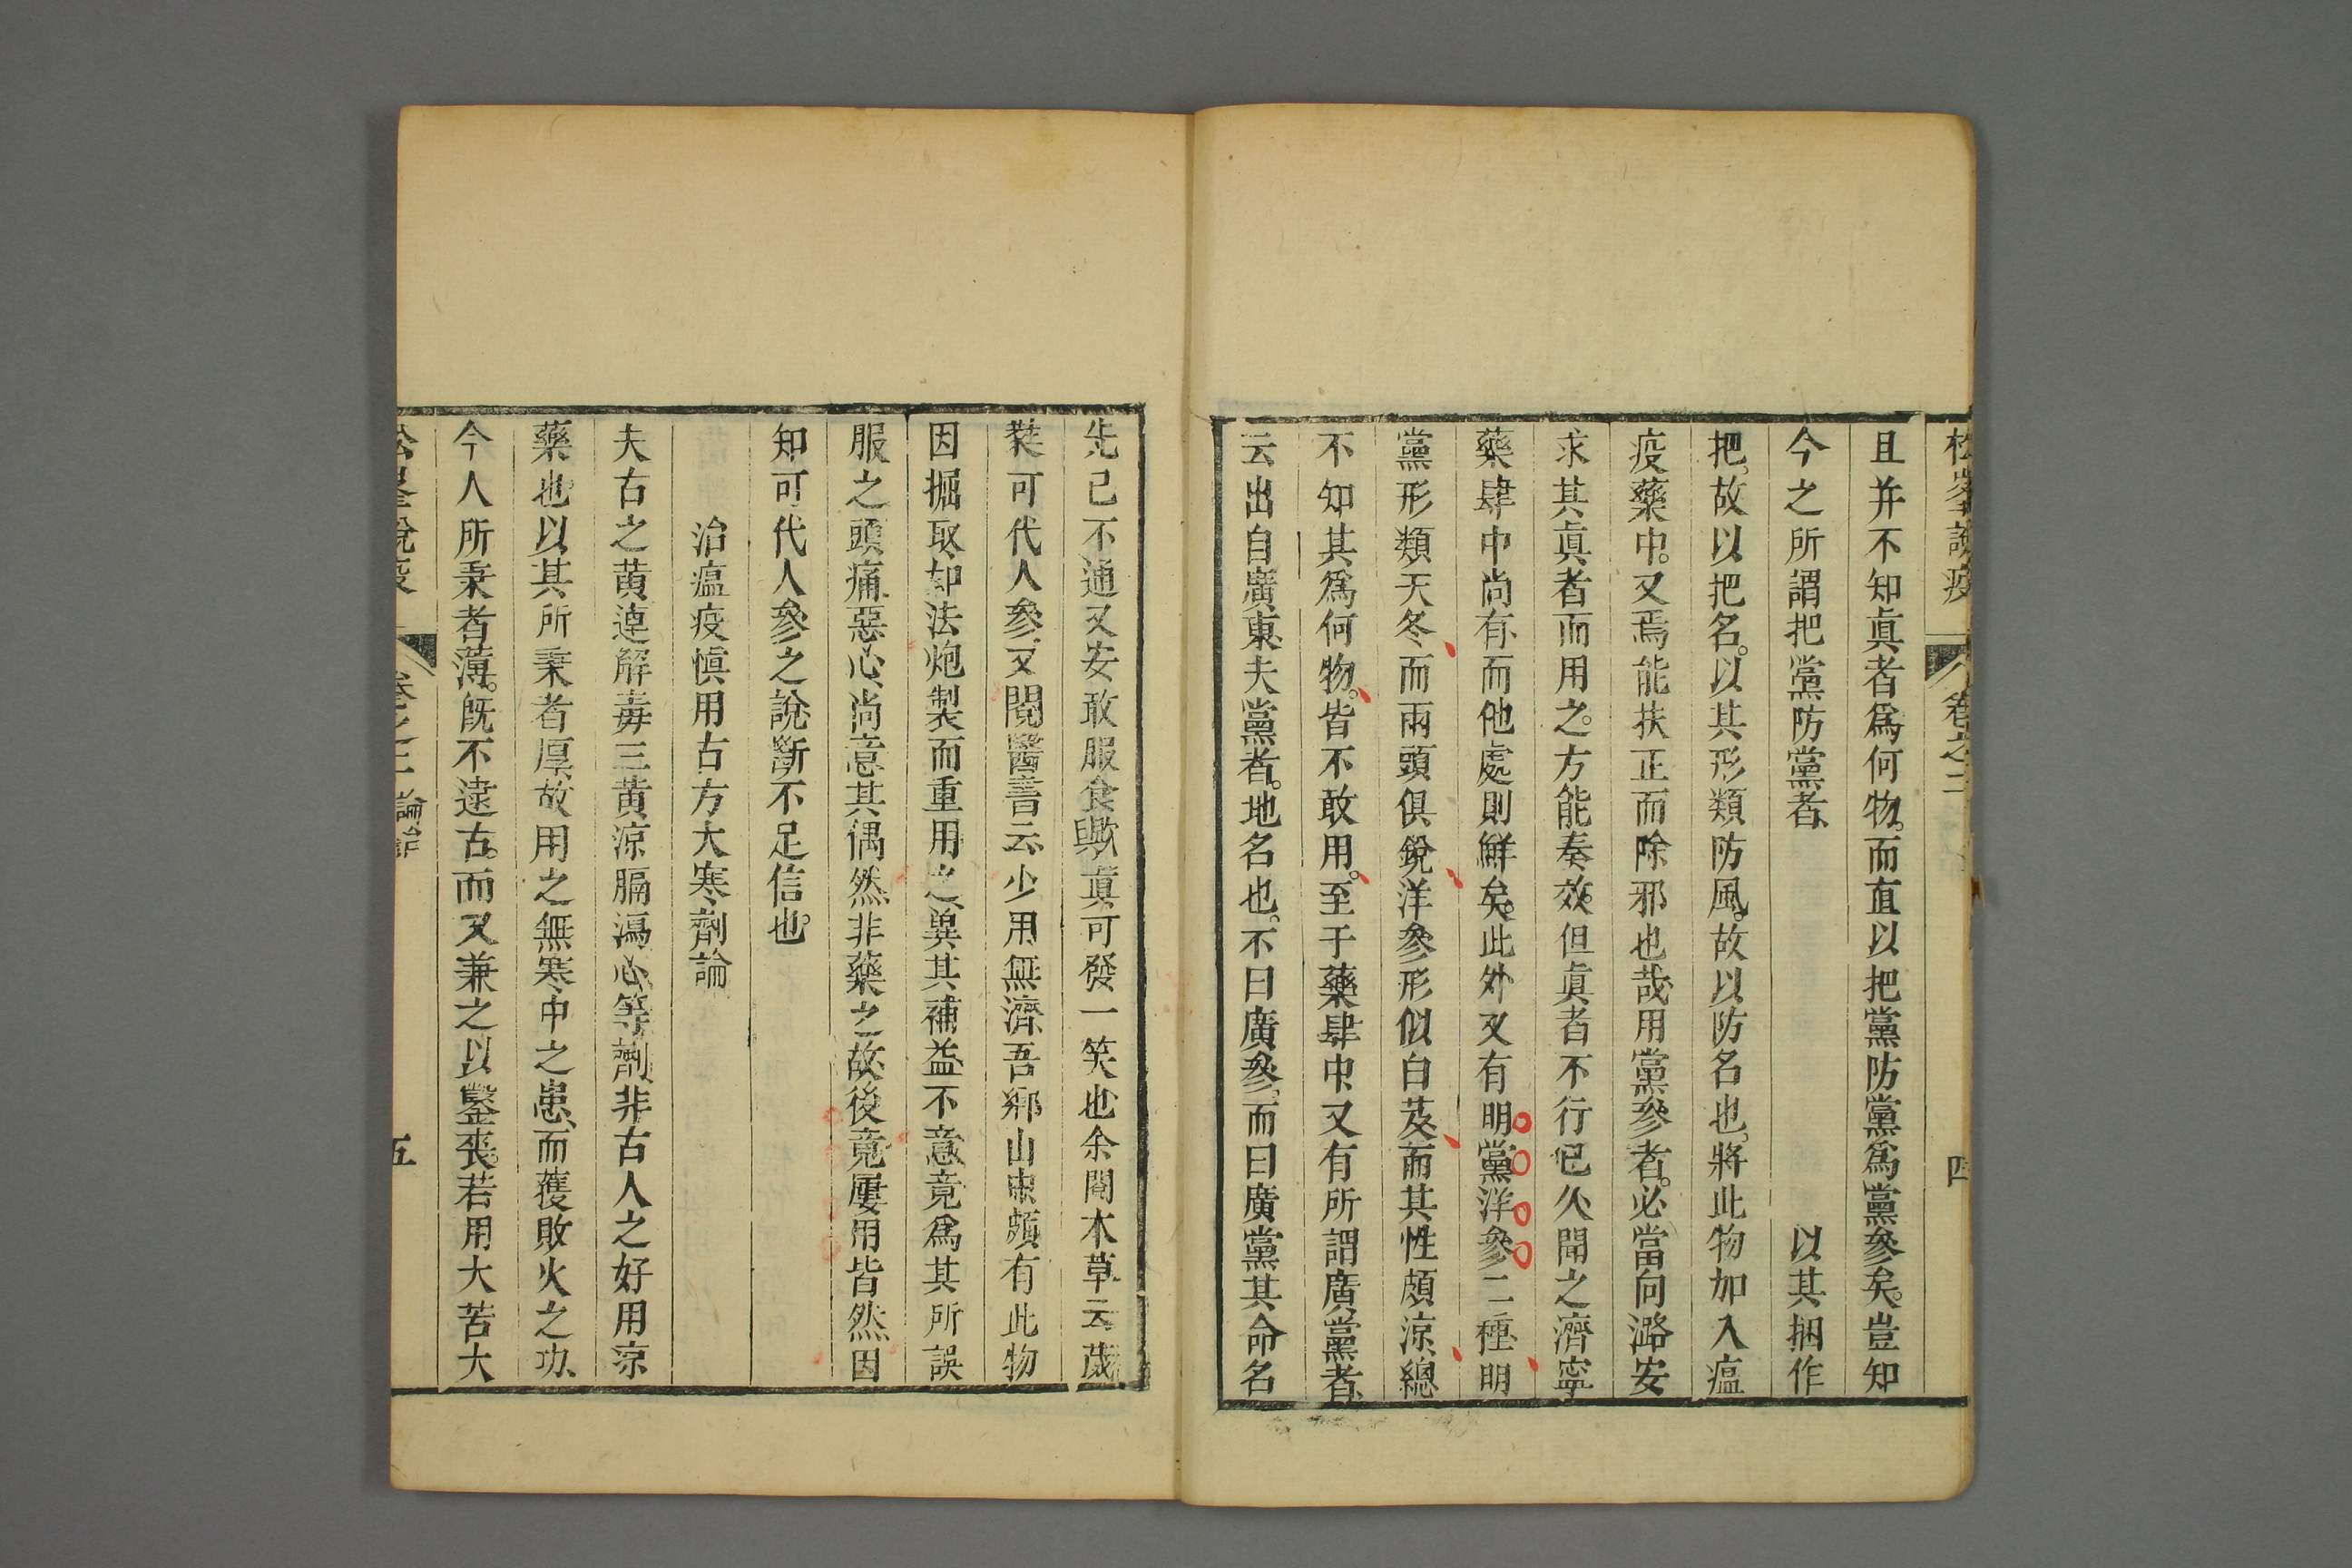 松峯說疫 卷之二 四
且并不知眞者爲何物。而直以把黨防黨爲黨參矣。豈知
今之所謂把黨防黨者、 以其捆作
把。故以把名。以其形類防風。故以防名也。將此物加入瘟
疫藥中。又焉能扶正而除邪也哉。用黨參者。必當向潞安
求其眞者而用之。方能奏效。但眞者不行已久。聞之濟寧
藥肆中尚有、而他處則鮮矣。此外又有明黨洋參二種、明
黨形類天冬、而兩頭俱銳、洋參形似白芨、而其性頗涼、總
不知其爲何物。皆不敢用。至于藥肆中、又有所謂廣黨者、
云出自廣東、夫黨者。地名也。不曰廣參、而曰廣黨、其命名
先已不通、又安敢服食歟、眞可發一笑也、余閱本草云、葳
㽔可代人參、又閱醫書云、少用無濟、吾鄉山中頗有此物、
因掘取如法炮製、而重用之、冀其補益、不意竟爲其所誤、
服之頭痛惡心、尚意其偶然、非藥之故、後竟屢用皆然、因
知可代人參之說、斷不足信也。
治瘟疫愼用古方大寒劑論
夫古之黃連解毒三黃涼膈瀉心等劑、非古人之好用涼
藥也、以其所秉者厚、故用之無寒中之患、而獲敗火之功、
今人所秉者薄。既不遠古。而又兼之以鑿喪。若用大苦大
松峯說疫 卷之二 論治 五